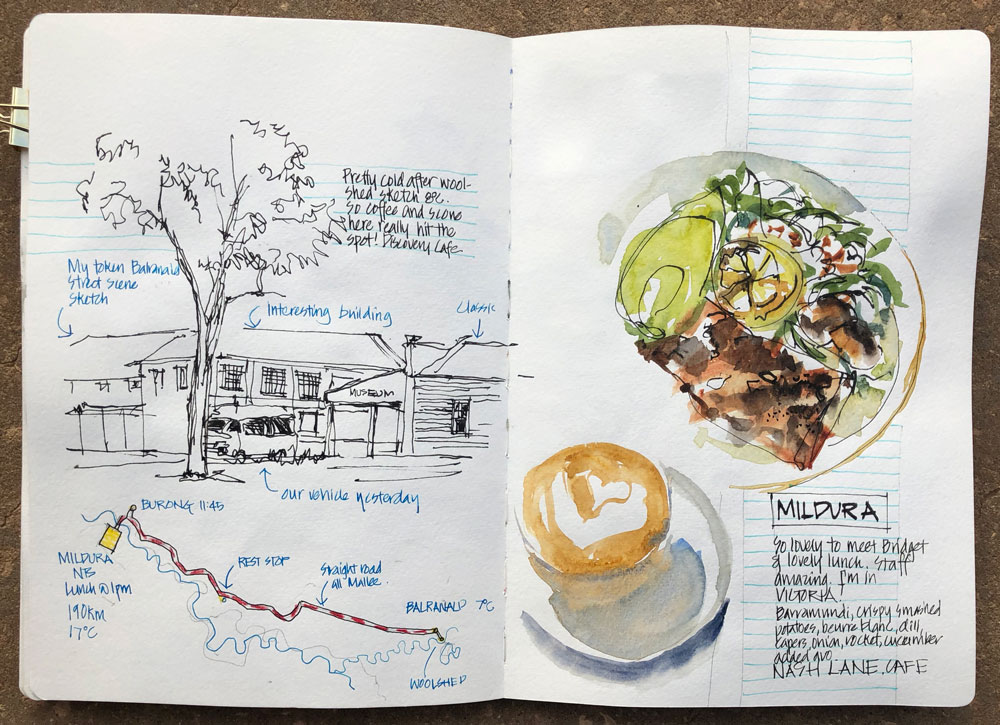 Pretty cold after wool-
shed sketch 8°C.
So coffee and scone
here really hit the
spot! Discovery Cafe.
My token Balranald
Street Scene
Sketch
Interesting building
Classic
MUSEUM
our vehicle yesterday
BURONG 11:45
MILDURA
NB
Lunch @ 1pm
190km
17°C
REST STOP
Straight road
all Mallee.
BALRANALD 7°C
WOOLSHED
MILDURA
So lovely to meet Bridget
& lovely lunch. Staff
amazing. I'm in
VICTORIA!
Barramundi, crispy smashed
potatoes, beurre blanc, dill,
capers, onion, rocket, cucumber
added avo
NASH LANE.CAFE